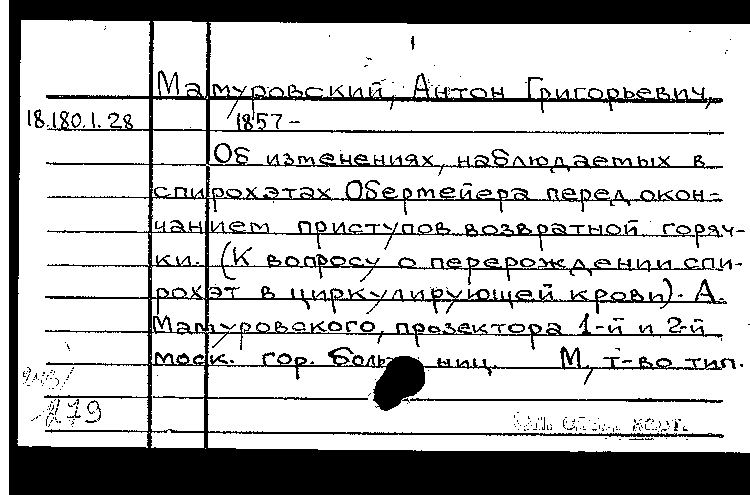 Матуровский, Антон Григорьевич,
18.180.1.28 1857-
Об изменениях, наблюдаемых в
спирохэтах Обермейера перед окон-
чанием приступов возвратной горяч-
ки. (К вопросу о перерождении спи-
рохэт в циркулирующей крови). А.
Матуровского, прозектора 1-й и 2-й
моск. гор. больниц. М, т-во тип.
279